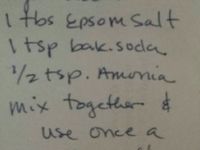 1 tbs Epsom Salt
1 tsp bak. soda
1/2 tsp. Amonia
mix together &
use once a